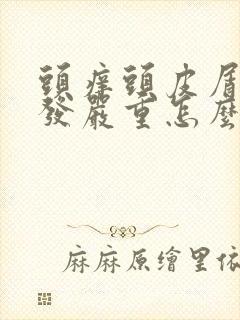 頭癢頭皮屑
發嚴重怎麼
麻麻原繪里依